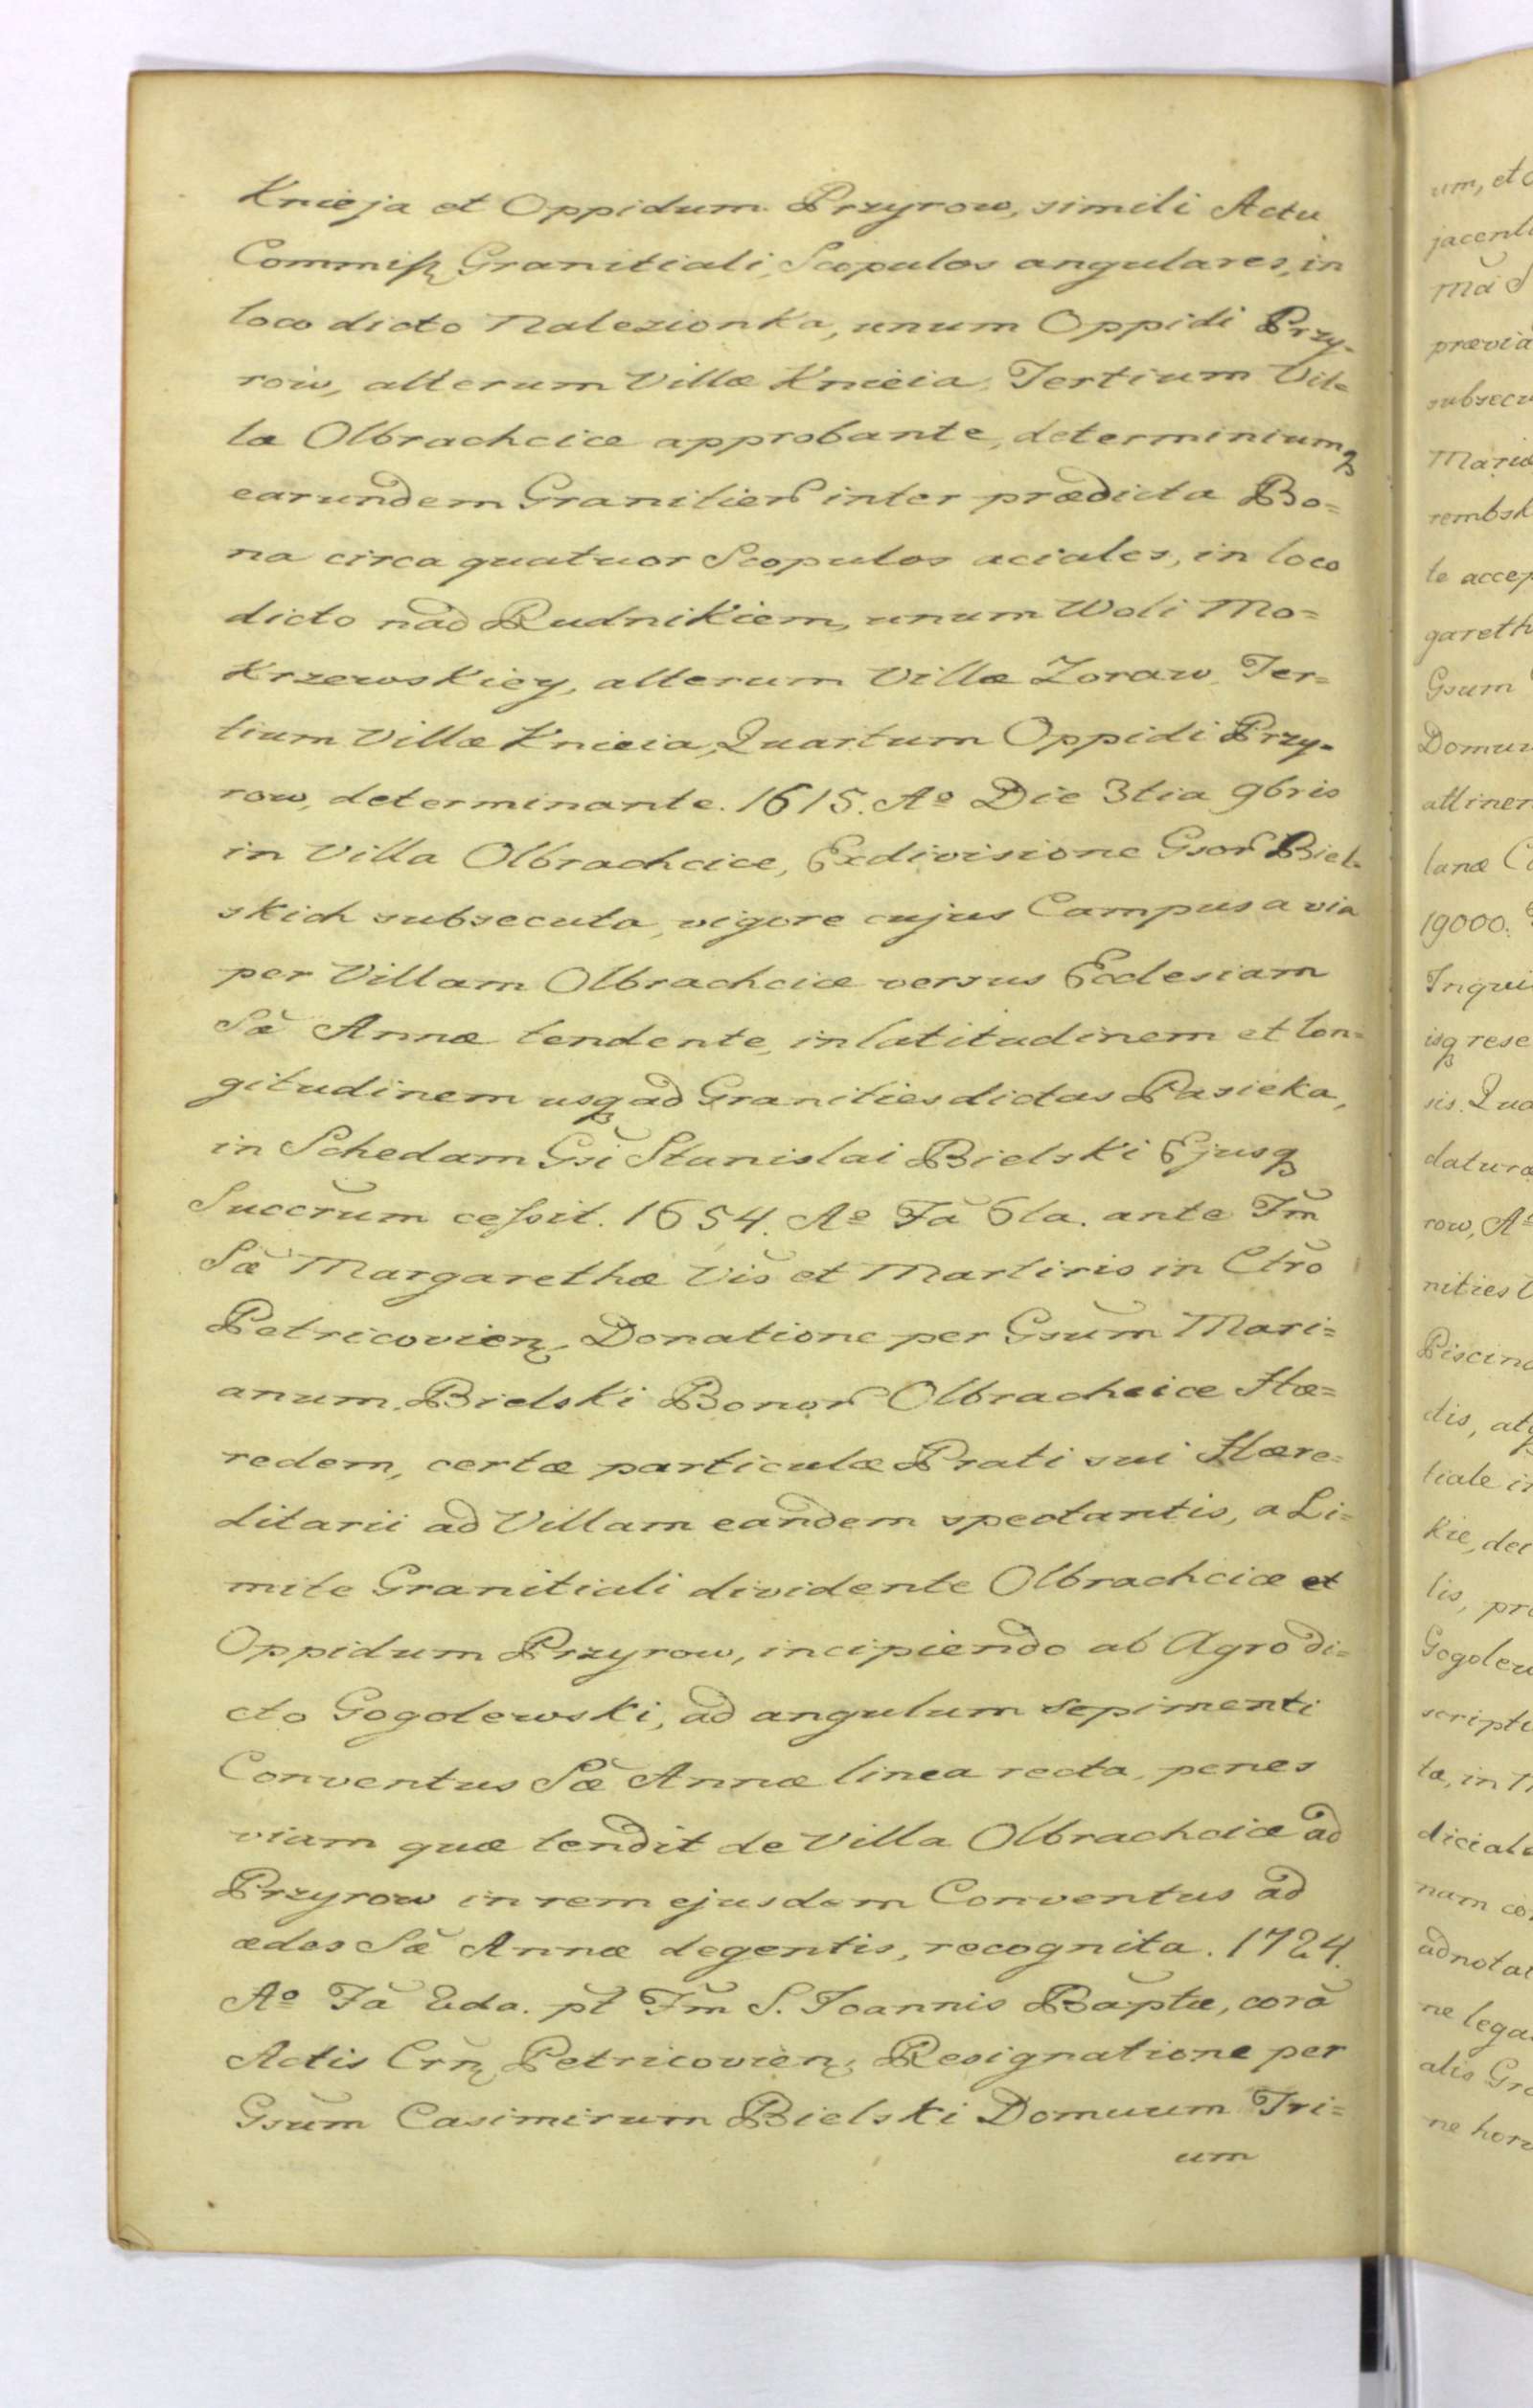 Knieja et Oppidum Przyrow, simili Actu
Commiss Granitiali, Scopulos angulares, in
loco dicto Nalezionka, unum Oppidi Przy-
row, alterum Villæ Knieia, Tertium Vil=
læ Olbrachcice approbante, determiniumq
earundem Granitier inter prædicta Bo=
na circa quatuor Scopulos aciales, in loco
dicto nad Rudnikiem, unum Woli Mo=
krzewskiey, alterum Villæ Zoraw, Ter=
tium Villæ Knieia, Quartum Oppidi Przy=
row, determinante. 1615. Aº Die 3tia 9bris
in Villa Olbrachcice, Exdivisione Gsor Biel=
skich subsecuta, vigore cujus Campus a via
per Villam Olbrachcice versus Ecclesiam
Sæ̃ Annæ tendente, in latitudinem et lon=
gitudinem usq ad Granities dictas Pasieka,
in Schedam Gsĩ Stanislai Bielski Ejusq
Succr̃um cessit. 1654. Aº Fã 6ta. ante Fm̃
Sæ̃ Margarethæ Vis̃ et Martiris in Ctrõ
Petricovien, Donatione per Gsũm Mari=
anum Bielski Bonor Olbrachcice Hæ=
redem, certæ particulæ Prati sui Hære=
ditarii ad Villam eandem spectantis, a Li=
mite Granitiali dividente Olbrachcice et
Oppidum Przyrow, incipiendo ab Agro di=
cto Gogolewski, ad angulum sepimenti
Conventus Sæ̃ Annæ linea recta, penes
viam quæ tendit de Villa Olbrachcice ad
Przyrow in rem ejusdem Conventus ad
ædes Sæ̃ Annæ degentis, recognita. 1724.
Aº Fã 2da. pt̃ Fm̃ S. Joannis Bap̃tæ, corã
Actis Crñ Petricovien, Resignatione per
Gsũm Casimirum Bielski Domuum Tri=
um
um, et
jacent
mã
prævia
subsecu
Mariæ
rembsk
te accep
gareth
Gsum
Domu
attinen
lanæ
19000.
Inqui
isq rese
sis. Qua
datura
row, Aº
nities
Piscinæ
dis, atq
tiale in
kie, de
lis, pr
Gogolew
script
ta, in
dicial
nam co
adnotat
ne lega
alis Gr
ne hor